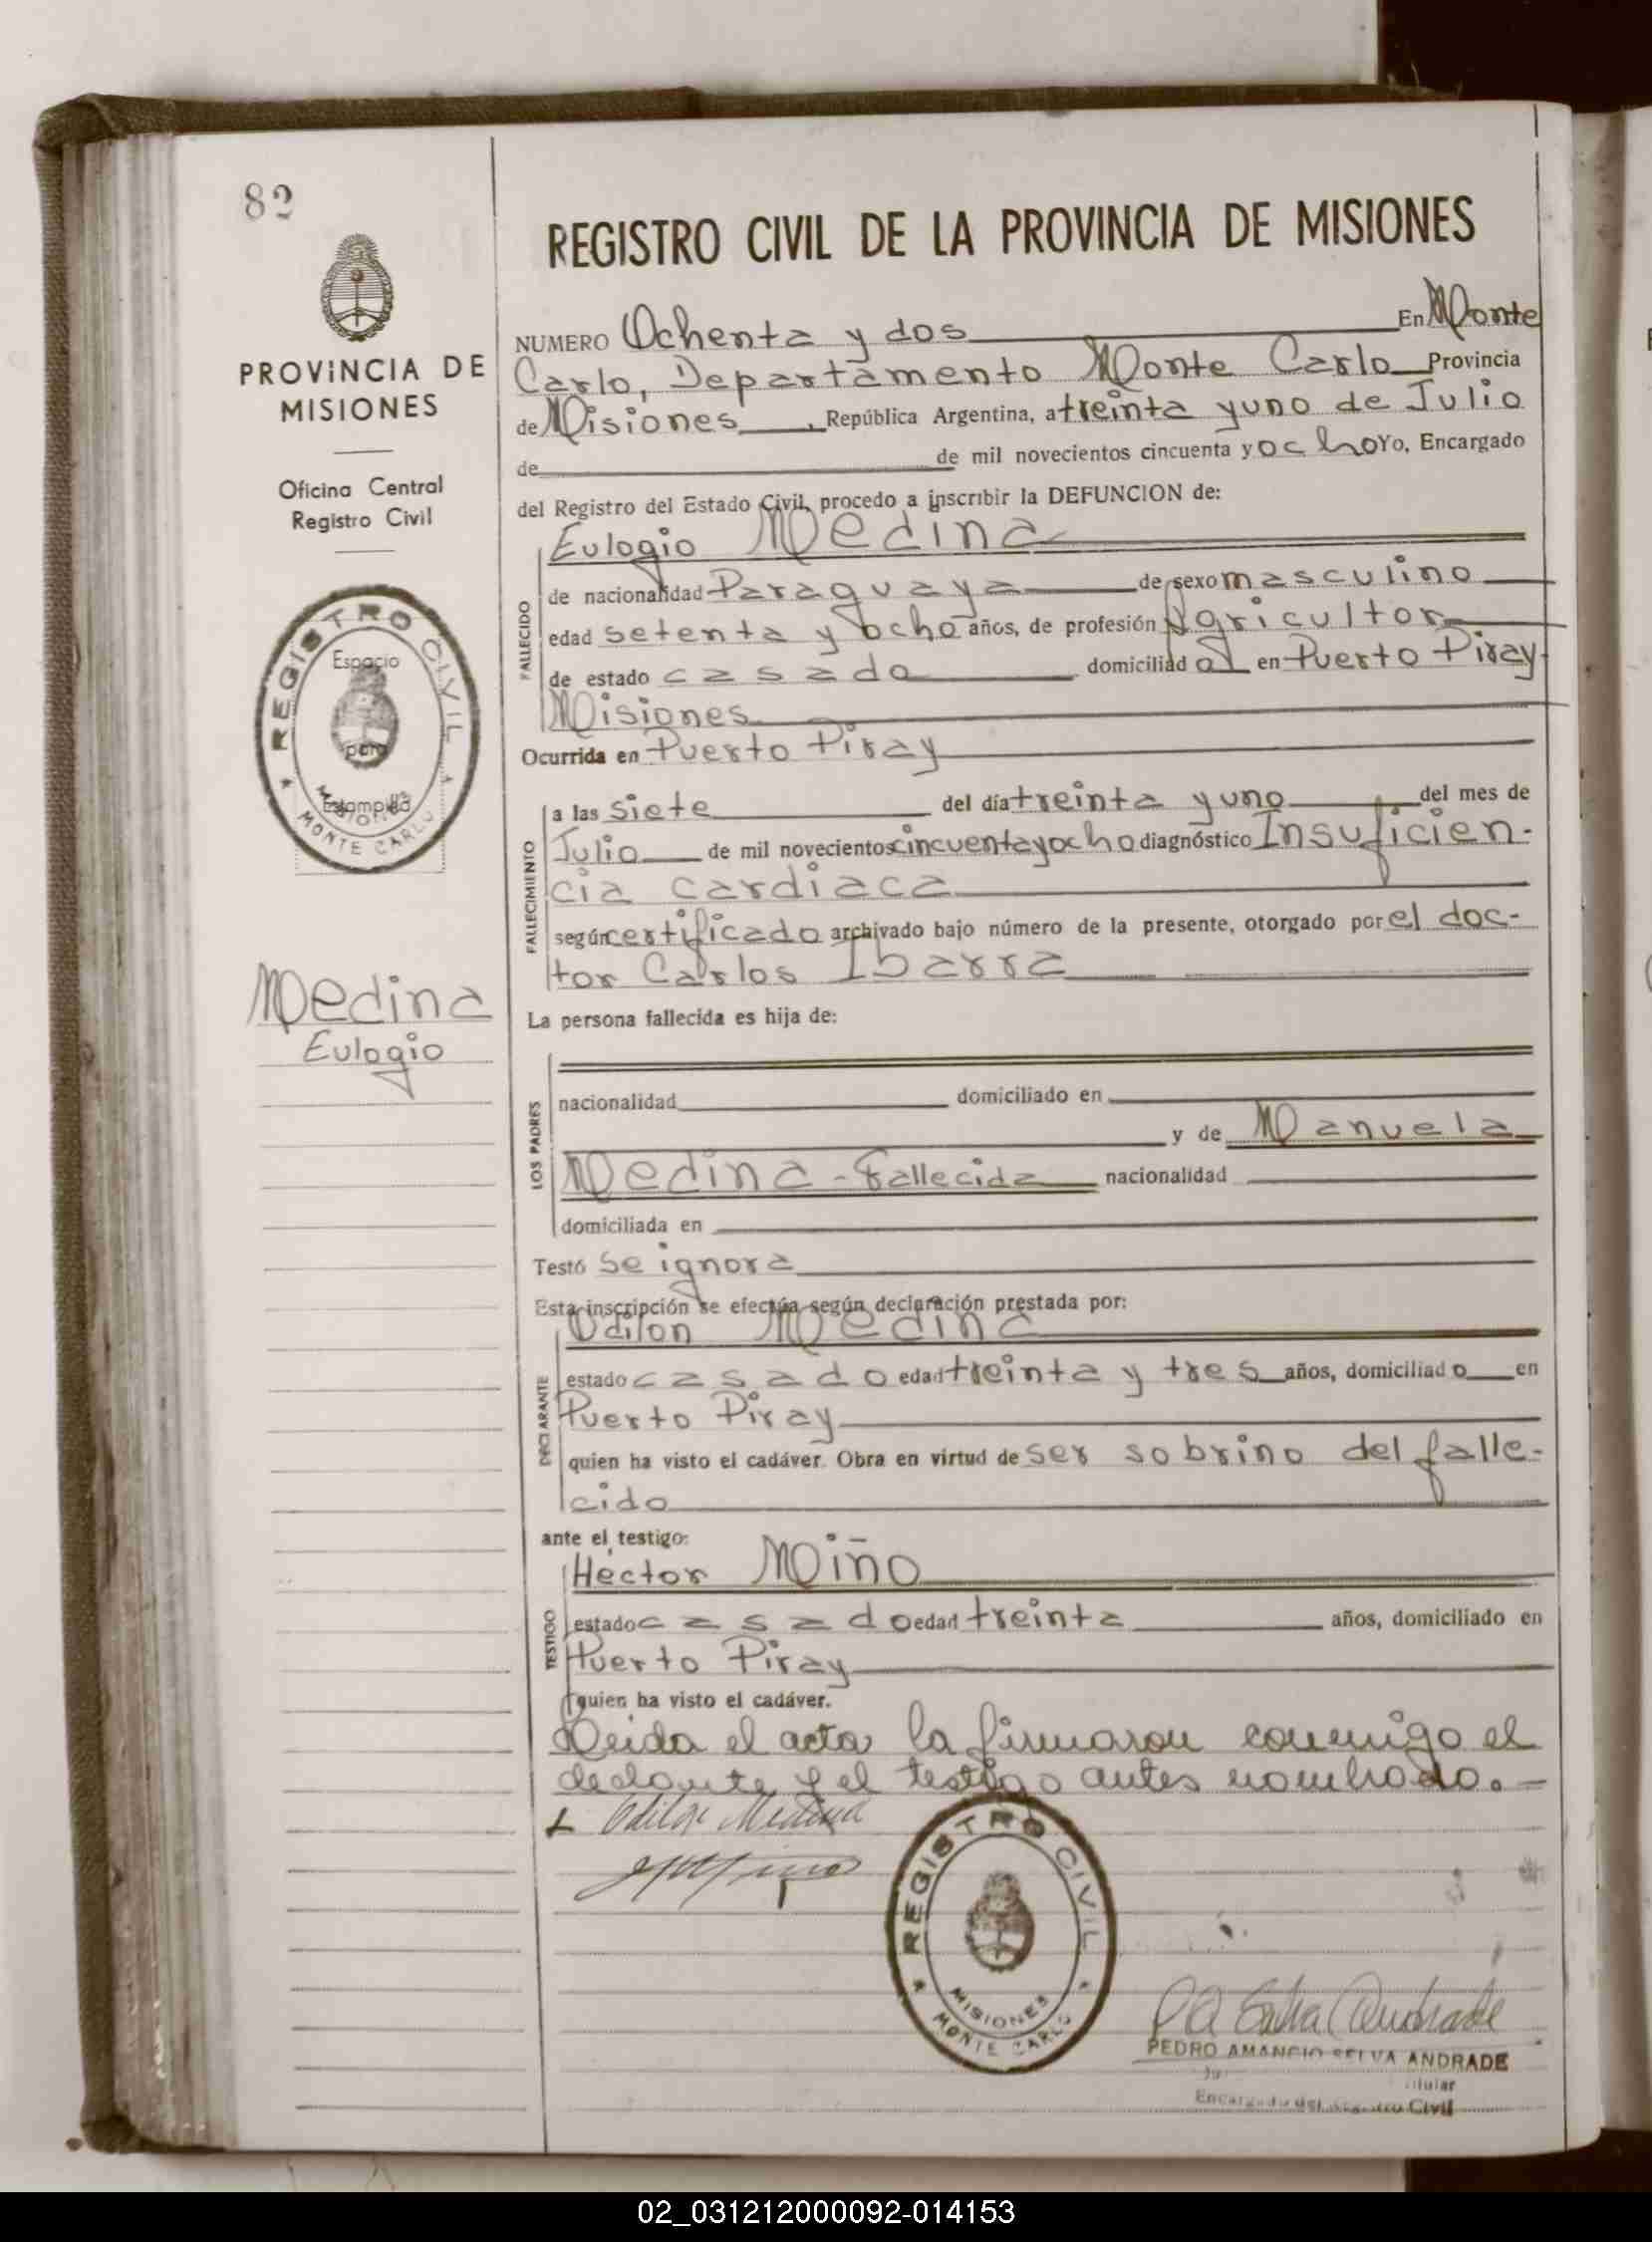 82
PROVINCIA DE
MISIONES
Oficina Central
Registro Civil
REGISTRO CIVIL
Espacio
para
Estampilla
MISIONES
MONTE CARLO
Medina
Eulogio
REGISTRO CIVIL DE LA PROVINCIA DE MISIONES
NUMERO Ochenta y dos En Monte
Carlo, Departamento Monte Carlo Provincia
de Misiones, República Argentina, a treinta y uno de Julio
de de mil novecientos cincuenta y ocho Yo, Encargado
del Registro del Estado Civil, procedo a inscribir la DEFUNCION de:
Eulogio Medina
FALLECIDO
de nacionalidad Paraguaya de sexo masculino
edad setenta y ocho años, de profesión Agricultor
de estado casado domiciliado en Puerto Piray
Misiones
Ocurrida en Puerto Piray
FALLECIMIENTO
a las siete del día treinta y uno del mes de
Julio de mil novecientos cincuenta y ocho diagnóstico Insuficien-
cia cardiaca
según certificado archivado bajo número de la presente, otorgado por el doc-
tor Carlos Ibarra
La persona fallecida es hija de:
LOS PADRES
nacionalidad domiciliado en
y de Manuela
Medina - fallecida nacionalidad
domiciliada en
Testó se ignora
Esta inscripción se efectúa según declaración prestada por:
Odilon Medina
DECLARANTE
estado casado edad treinta y tres años, domiciliado en
Puerto Piray
quien ha visto el cadáver. Obra en virtud de ser sobrino del falle-
cido
ante el testigo:
Hector Miño
TESTIGO
estado casado edad treinta años, domiciliado en
Puerto Piray
quien ha visto el cadáver.
Leida el acta la firmaron conmigo el
declarante y el testigo antes nombrado.-
Odilon Medina
REGISTRO CIVIL
MISIONES
MONTE CARLO
PA Selva Andrade
PEDRO AMANCIO SELVA ANDRADE
Titular
Encargado del Registro Civil
02_031212000092-014153